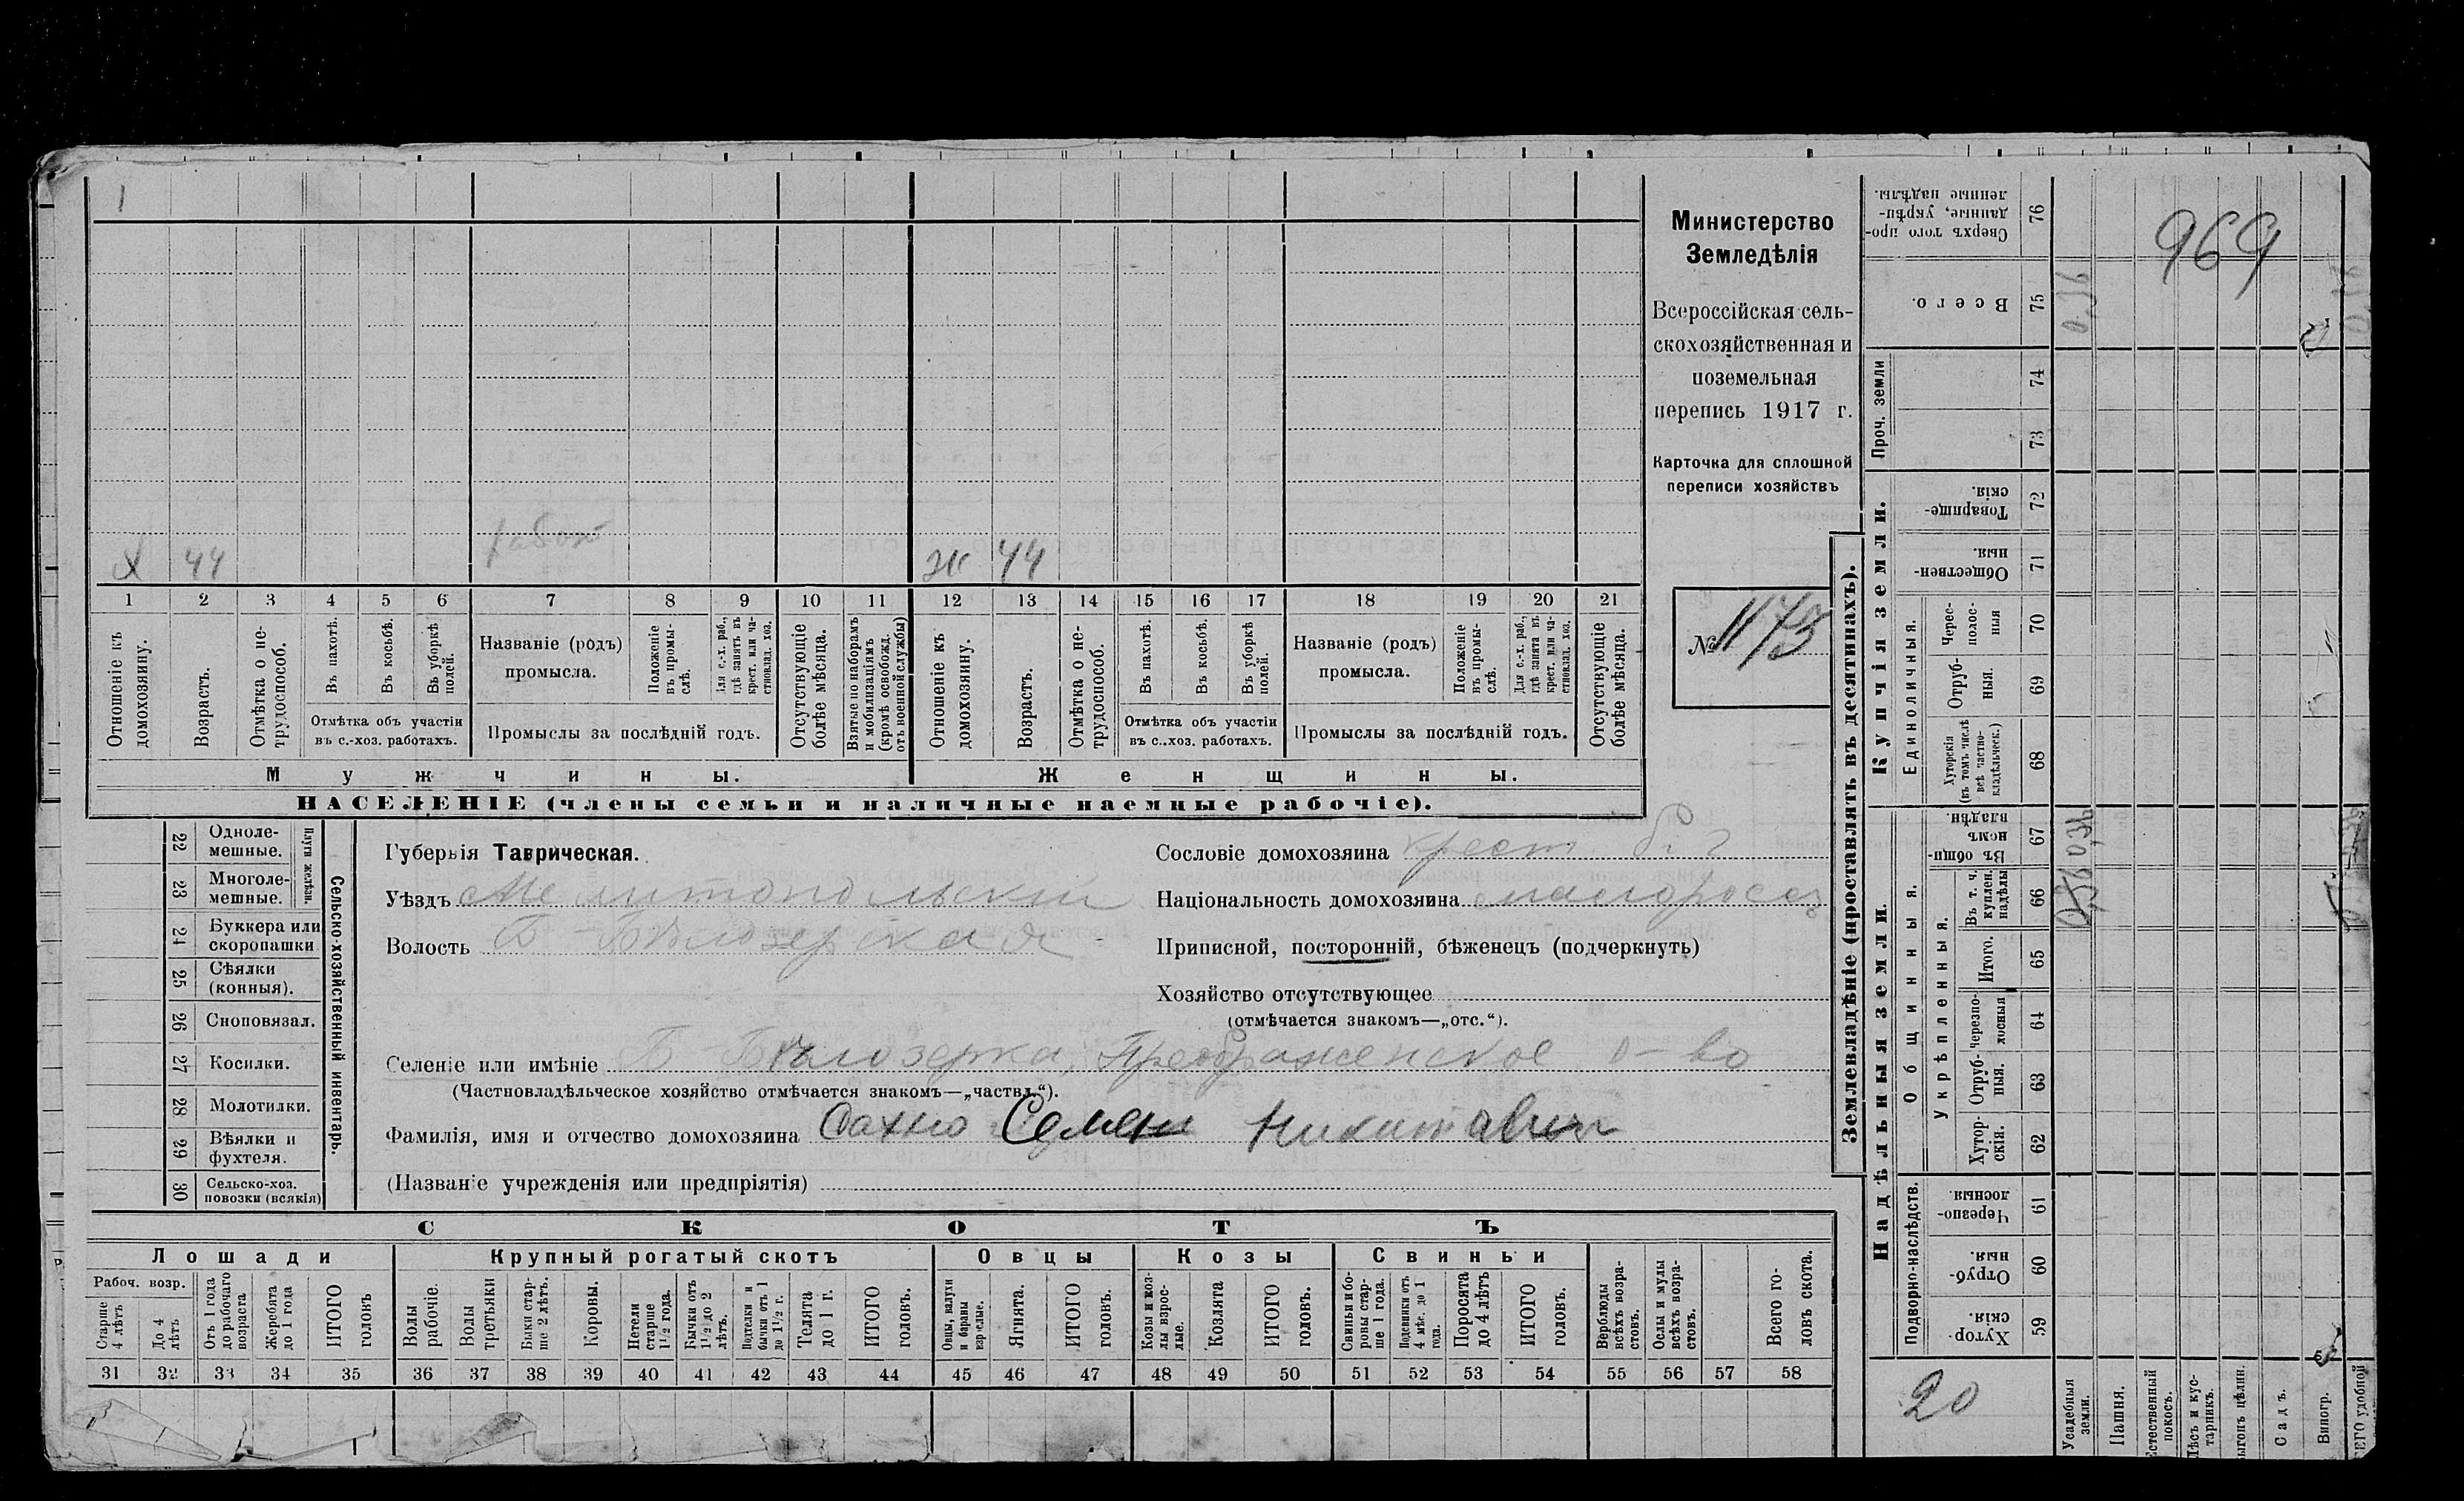 1
Х 44 работ
Ж 44
1 2 3 4 5 6 7 8 9 10 11 12 13 14 15 16 17 18 19 20 21
Отношеніе къ домохозяину.
Возрастъ.
Отмѣтка о не-трудоспособ.
Въ пахотѣ.
Въ косьбѣ.
Въ уборкѣ полей.
Отмѣтка объ участіи въ с.-хоз. работахъ.
Названіе (родъ) промысла.
Положеніе въ промы-слѣ.
Для с.-х. раб., гдѣ занятъ въ крест. или ча-стновлад. хоз.
Промыслы за послѣдній годъ.
Отсутствующіе болѣе мѣсяца.
Взятые по наборамъ и мобилизаціямъ (кромѣ освобожд. отъ военной службы)
Отношеніе къ домохозяину.
Возрастъ.
Отмѣтка о не-трудоспособ.
Въ пахотѣ.
Въ косьбѣ.
Въ уборкѣ полей.
Отмѣтка объ участіи въ с.-хоз. работахъ.
Названіе (родъ) промысла.
Положеніе въ промы-слѣ.
Для с.-х. раб., гдѣ занятъ въ крест. или ча-стновлад. хоз.
Промыслы за послѣдній годъ.
Отсутствующіе болѣе мѣсяца.
Мужчины.
Женщины.
НАСЕЛЕНІЕ (члены семьи и наличные наемные рабочіе).
Министерство
Земледѣлія
Всероссійская сель-
скохозяйственная и
поземельная
перепись 1917 г.
Карточка для сплошной
переписи хозяйствъ
№ 1173
22 Одноле-мешные.
23 Многоле-мешные.
Плуги желѣзн.
24 Буккера или скоропашки
25 Сѣялки (конныя).
26 Сноповязал.
27 Косилки.
28 Молотилки.
29 Вѣялки и фухтеля.
30 Сельско-хоз. повозки (всякія)
Сельско-хозяйственный инвентарь.
Губернія Таврическая.
Уѣздъ Мелитопольскій
Волость Б-Бѣлозерская
Сословіе домохозяина крест
Національность домохозяина малоросс
Приписной, посторонній, бѣженецъ (подчеркнуть)
Хозяйство отсутствующее
(отмѣчается знакомъ—„отс.“).
Селеніе или имѣніе Б-Бѣлозерка, Преображенское о-во
(Частновладѣльческое хозяйство отмѣчается знакомъ—„частвл.“).
Фамилія, имя и отчество домохозяина Сахно Семен Никитавич
(Названіе учрежденія или предпріятія)
СКОТЪ
Лошади
Крупный рогатый скотъ
Овцы
Козы
Свиньи
Рабоч. возр.
Старше 4 лѣтъ
До 4 лѣтъ
Отъ 1 года до рабочаго возраста
Жеребята до 1 года
ИТОГО головъ
Волы рабочіе.
Волы третьяки
Быки стар-ше 2 лѣтъ.
Коровы.
Нетели старше 1½ года.
Бычки отъ 1½ до 2 лѣтъ.
Подтелки и бычки отъ 1 до 1½ г.
Телята до 1 г.
ИТОГО головъ.
Овцы, валухи и бараны взрослые.
Ягнята.
ИТОГО головъ.
Козы и коз-лы взрос-лые.
Козлята
ИТОГО головъ.
Свиньи и бо-ровы стар-ше 1 года.
Подсвинки отъ 4 мѣс. до 1 года.
Поросята до 4 лѣтъ
ИТОГО головъ.
Верблюды всѣхъ возра-стовъ.
Ослы и мулы всѣхъ возра-стовъ.
Всего го-ловъ скота.
31 32 33 34 35 36 37 38 39 40 41 42 43 44 45 46 47 48 49 50 51 52 53 54 55 56 57 58
Землевладѣніе (проставлять въ десятинахъ).
Купчія земли.
Надѣльныя земли.
Сверхъ того про-данные, укрѣп-ленные надѣлы. 76
Всего. 75
Проч. земли 74 73
Товарище-скія. 72
Обществен-ныя. 71
Единоличныя.
Черес-полос-ныя 70
Отруб-ныя. 69
Хуторскія (въ томъ числѣ всѣ частно-владѣльческ.) 68
Общинныя.
Въ общин-номъ владѣн. 67
Укрѣпленныя.
Въ т. ч. куплен. надѣлы 66
Итого. 65
Черезпо-лосныя 64
Отруб-ныя. 63
Хутор-скія. 62
Подворно-наслѣдств.
Черезпо-лосныя. 61
Отруб-ныя. 60
Хутор-скія. 59
969
0,36
0,36
20
Усадебныя земли.
Пашня.
Естественный покосъ.
Лѣсъ и кус-тарникъ.
Выгонъ цѣлин.
Садъ.
Виногр.